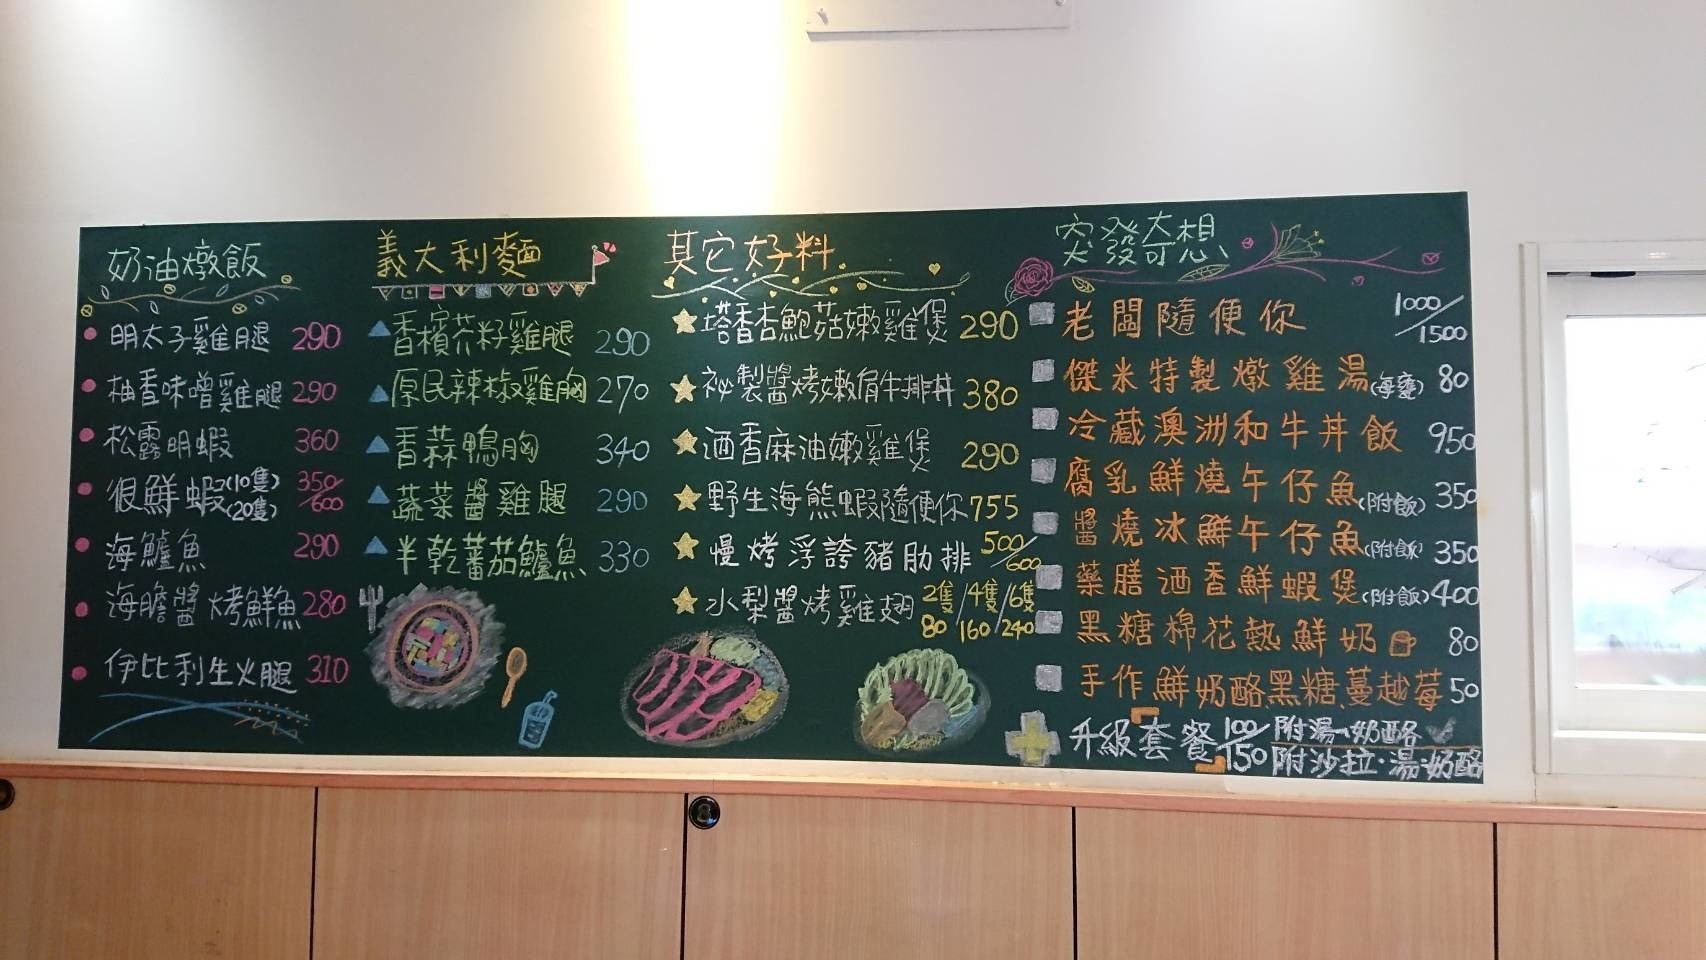 奶油燉飯
明太子雞腿 290
柚香味噌雞腿 290
松露明蝦 360
很鮮蝦(10隻) 350/
(20隻) 600
海鱸魚 290
海膽醬烤鮮魚 280
伊比利生火腿 310
義大利麵
香檳芥籽雞腿 290
原民辣椒雞胸 270
香蒜鴨胸 340
蔬菜醬雞腿 290
半乾蕃茄鱸魚 330
其它好料
塔香杏鮑菇嫩雞煲 290
祕製醬烤嫩肩牛排丼 380
酒香麻油嫩雞煲 290
野生海熊蝦隨便你 755
慢烤浮誇豬肋排 500/600
水梨醬烤雞翅 2隻/4隻/6隻
80/160/240
突發奇想
老闆隨便你 1000/1500
傑米特製燉雞湯(每甕) 80
冷藏澳洲和牛丼飯 950
腐乳鮮燒午仔魚(附飯) 350
醬燒冰鮮午仔魚(附飯) 350
藥膳酒香鮮蝦煲(附飯) 400
黑糖棉花熱鮮奶 80
手作鮮奶酪黑糖、蔓越莓 50
升級套餐 100/附湯、奶酪
150 附沙拉、湯、奶酪